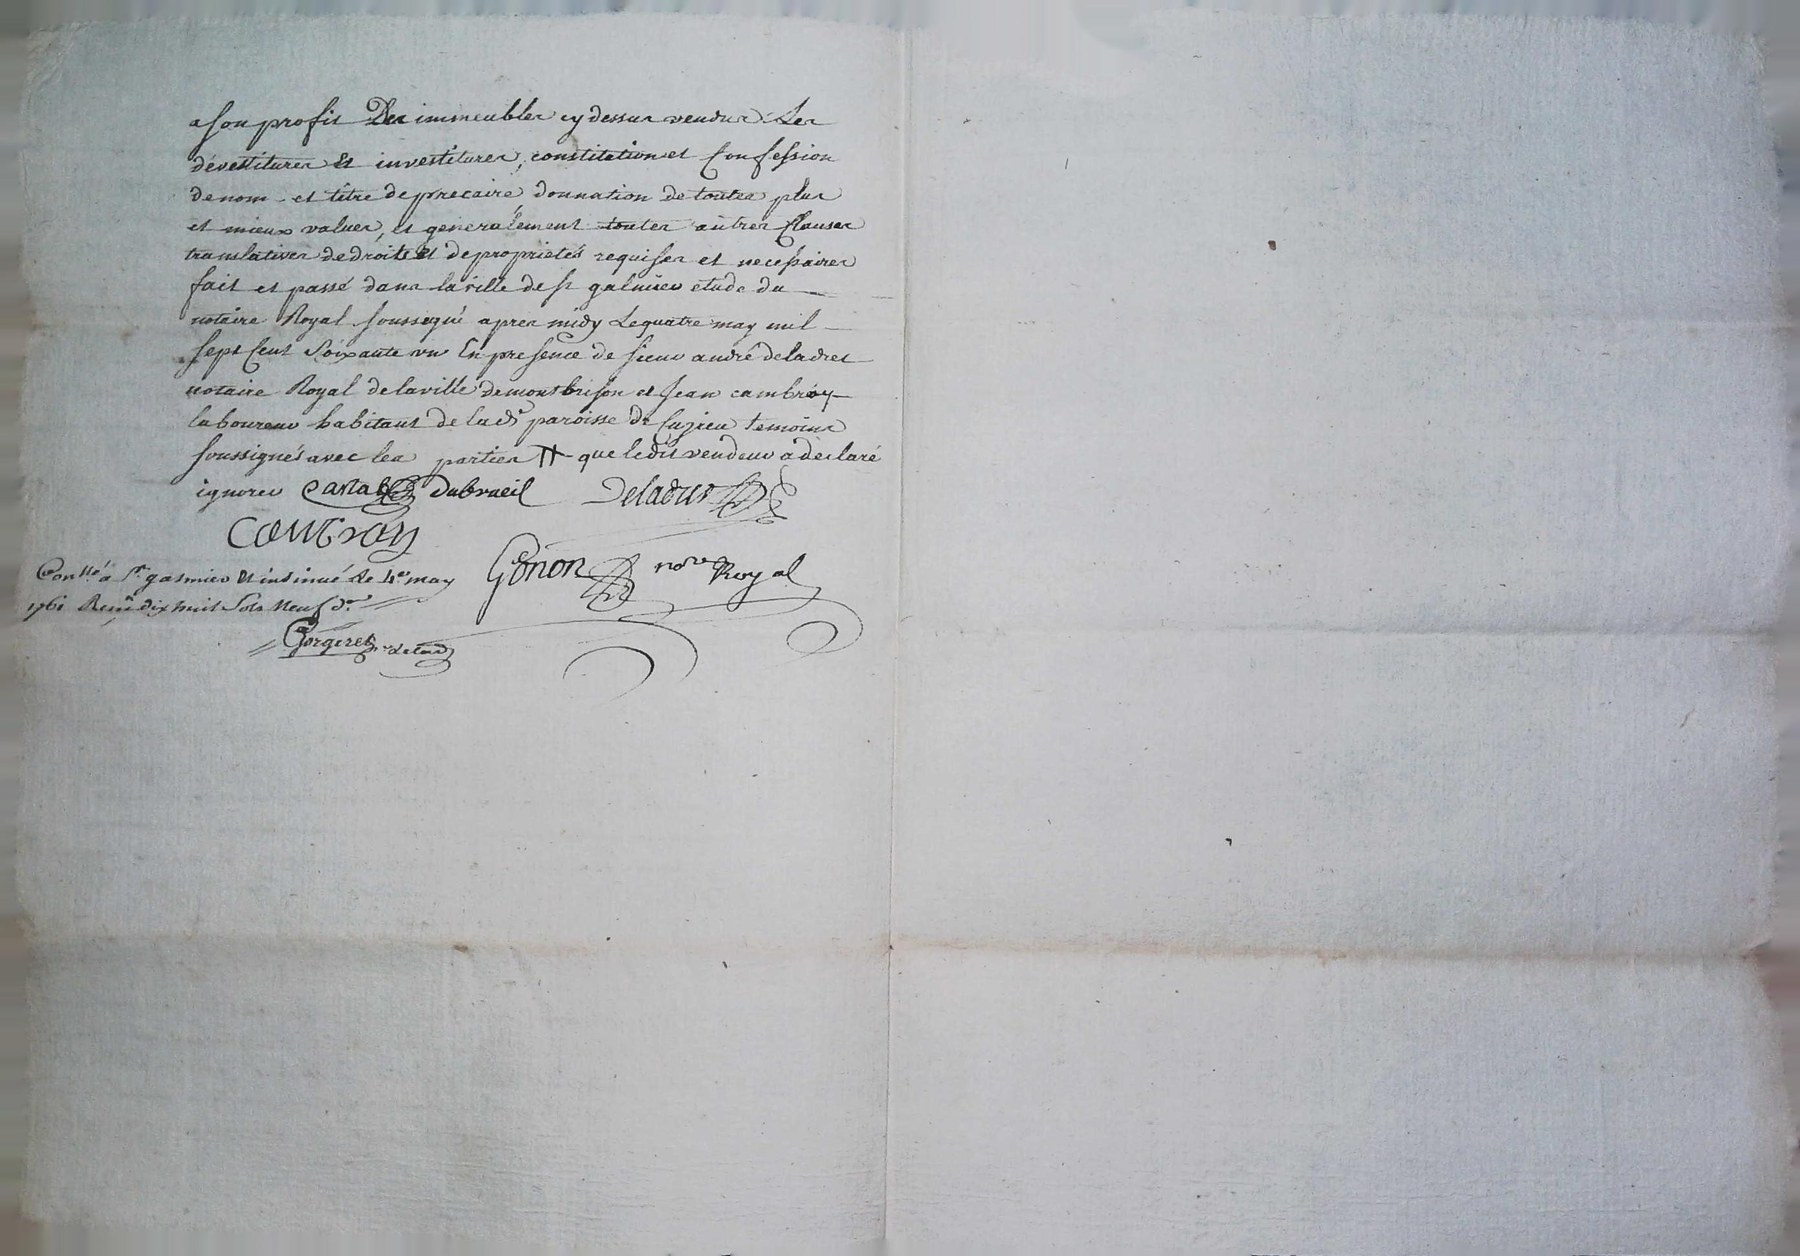 a son profit Des immeubles cy dessus vendus Les
dévestitures Et investitures, constitution et Confession
de nom et tître de precaire, donnation de toutes plus
et mieux values, et generalement toutes aûtres Clauses
translatives de droits Et de proprietés requises et necessaires
fait et passé dans la ville de St galmier etude du
notaire Royal soussigné apres midy Le quatre may mil
sept Cent Soixante un En presence de sieur andré deladret
notaire Royal de la ville de montbrison et Jean cambray
laboureur habitant de lade paroisse de Cuzieu temoins
soussignés avec les parties # que ledit vendeur a declaré
ignorer Dubrueil Deladret
Gonon nore Royal
Conllé a St galmier Et insinué Le 4e may
1761 dix huit Sols Neuf drs
Gorgeret